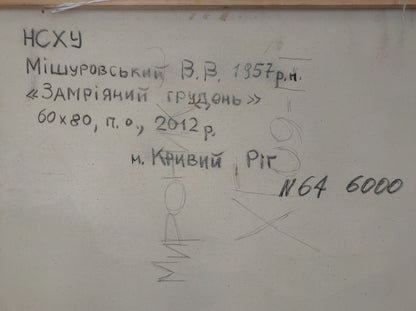 НСХУ
Мішуровський В.В. 1957р.н.
«Замріяний грудень»
60x80, п.о., 2012р.
м. Кривий Ріг
N64 6000